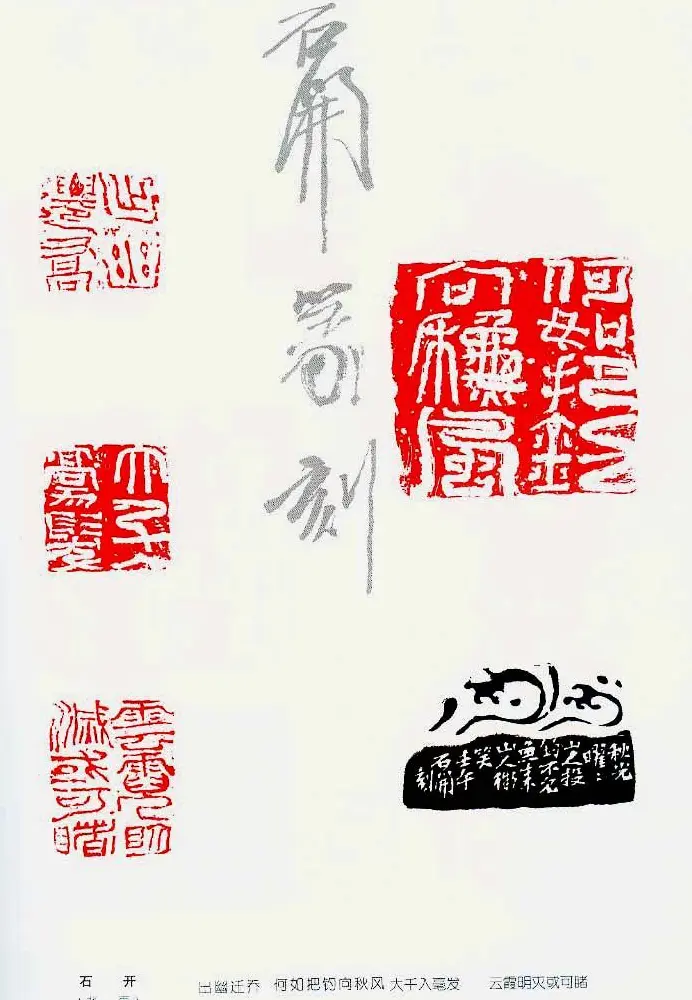 石開篆刻
出幽
遷喬
何如把釣
向龝風
大千入
毫髮
雲霞明
滅或可睹
秋光
曜〻
投
釣不名
魚來
山人
笑
壬午
石開
刻
石 开
出幽迁乔 何如把钓向秋风 大千入毫发 云霞明灭或可睹